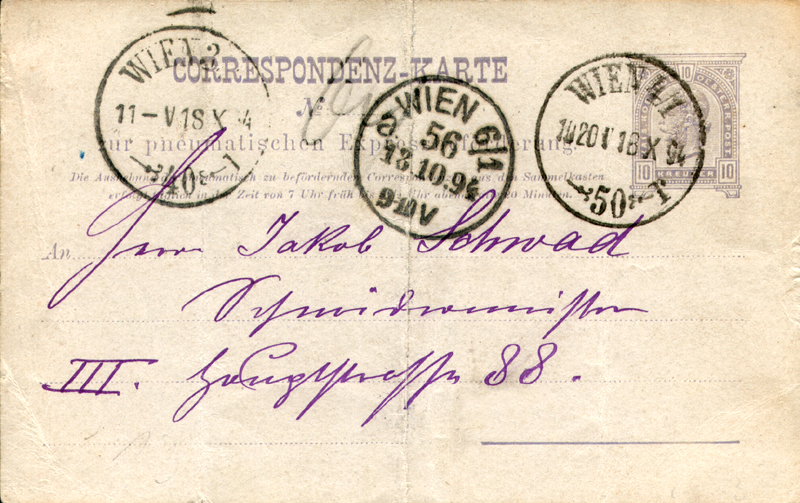 CORRESPONDENZ-KARTE
№
zur pneumatischen Expressbeförderung.
Die pneumatisch zu befördernden aus den Sammelkasten
erfolgt in der Zeit von 7 Uhr früh bis Uhr abends 20 Minuten.
WIEN
11-V 18 X 94
40
WIEN 6/1
56
18.10.94
9-V
a
WIEN 4/1
1020 V 18 X 94
50
10 KREUZER 10
An Herrn Jakob Schwad
Schneidermeister
III. Hauptstrasse 88.